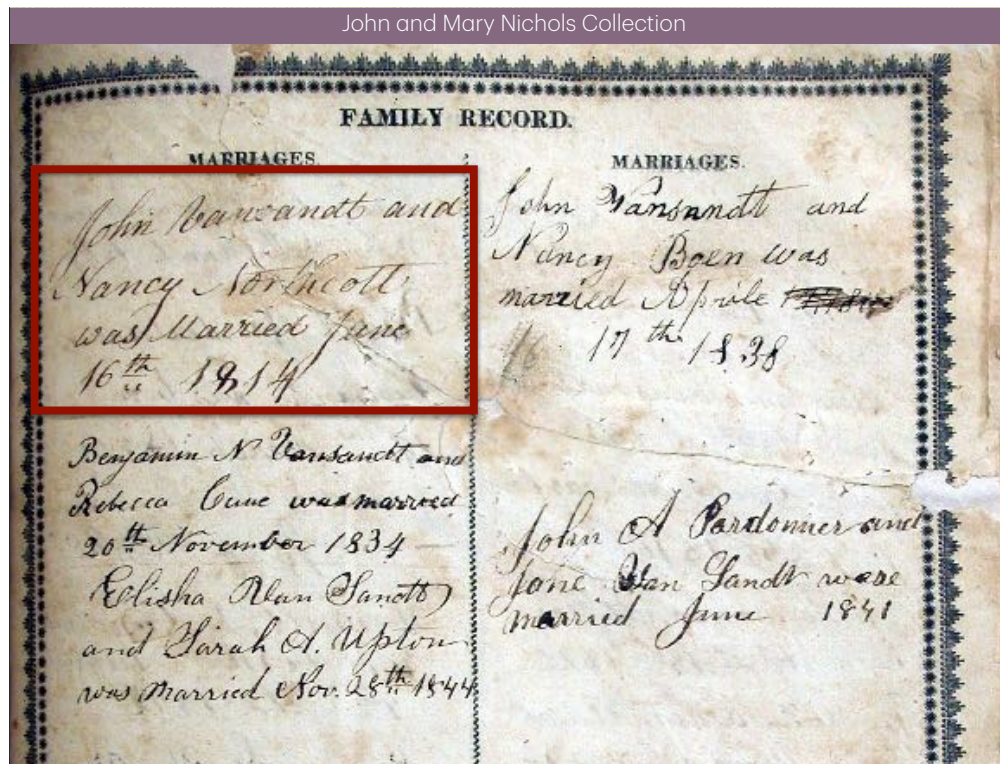 John and Mary Nichols Collection
FAMILY RECORD.
MARRIAGES.
John Vansandt and
Nancy Northcott
was Married June
16th 1814
Benjamin N Vansandt and
Rebecca was married
20th November 1834
Elisha Van Sandt
and Sarah A. Upton
was Married Nov. 28th 1844
MARRIAGES.
John Vansandt and
Nancy Boen was
married Aprile
17th 1838
John A Pardonner and
Jane Van Sandt ware
married June 1841